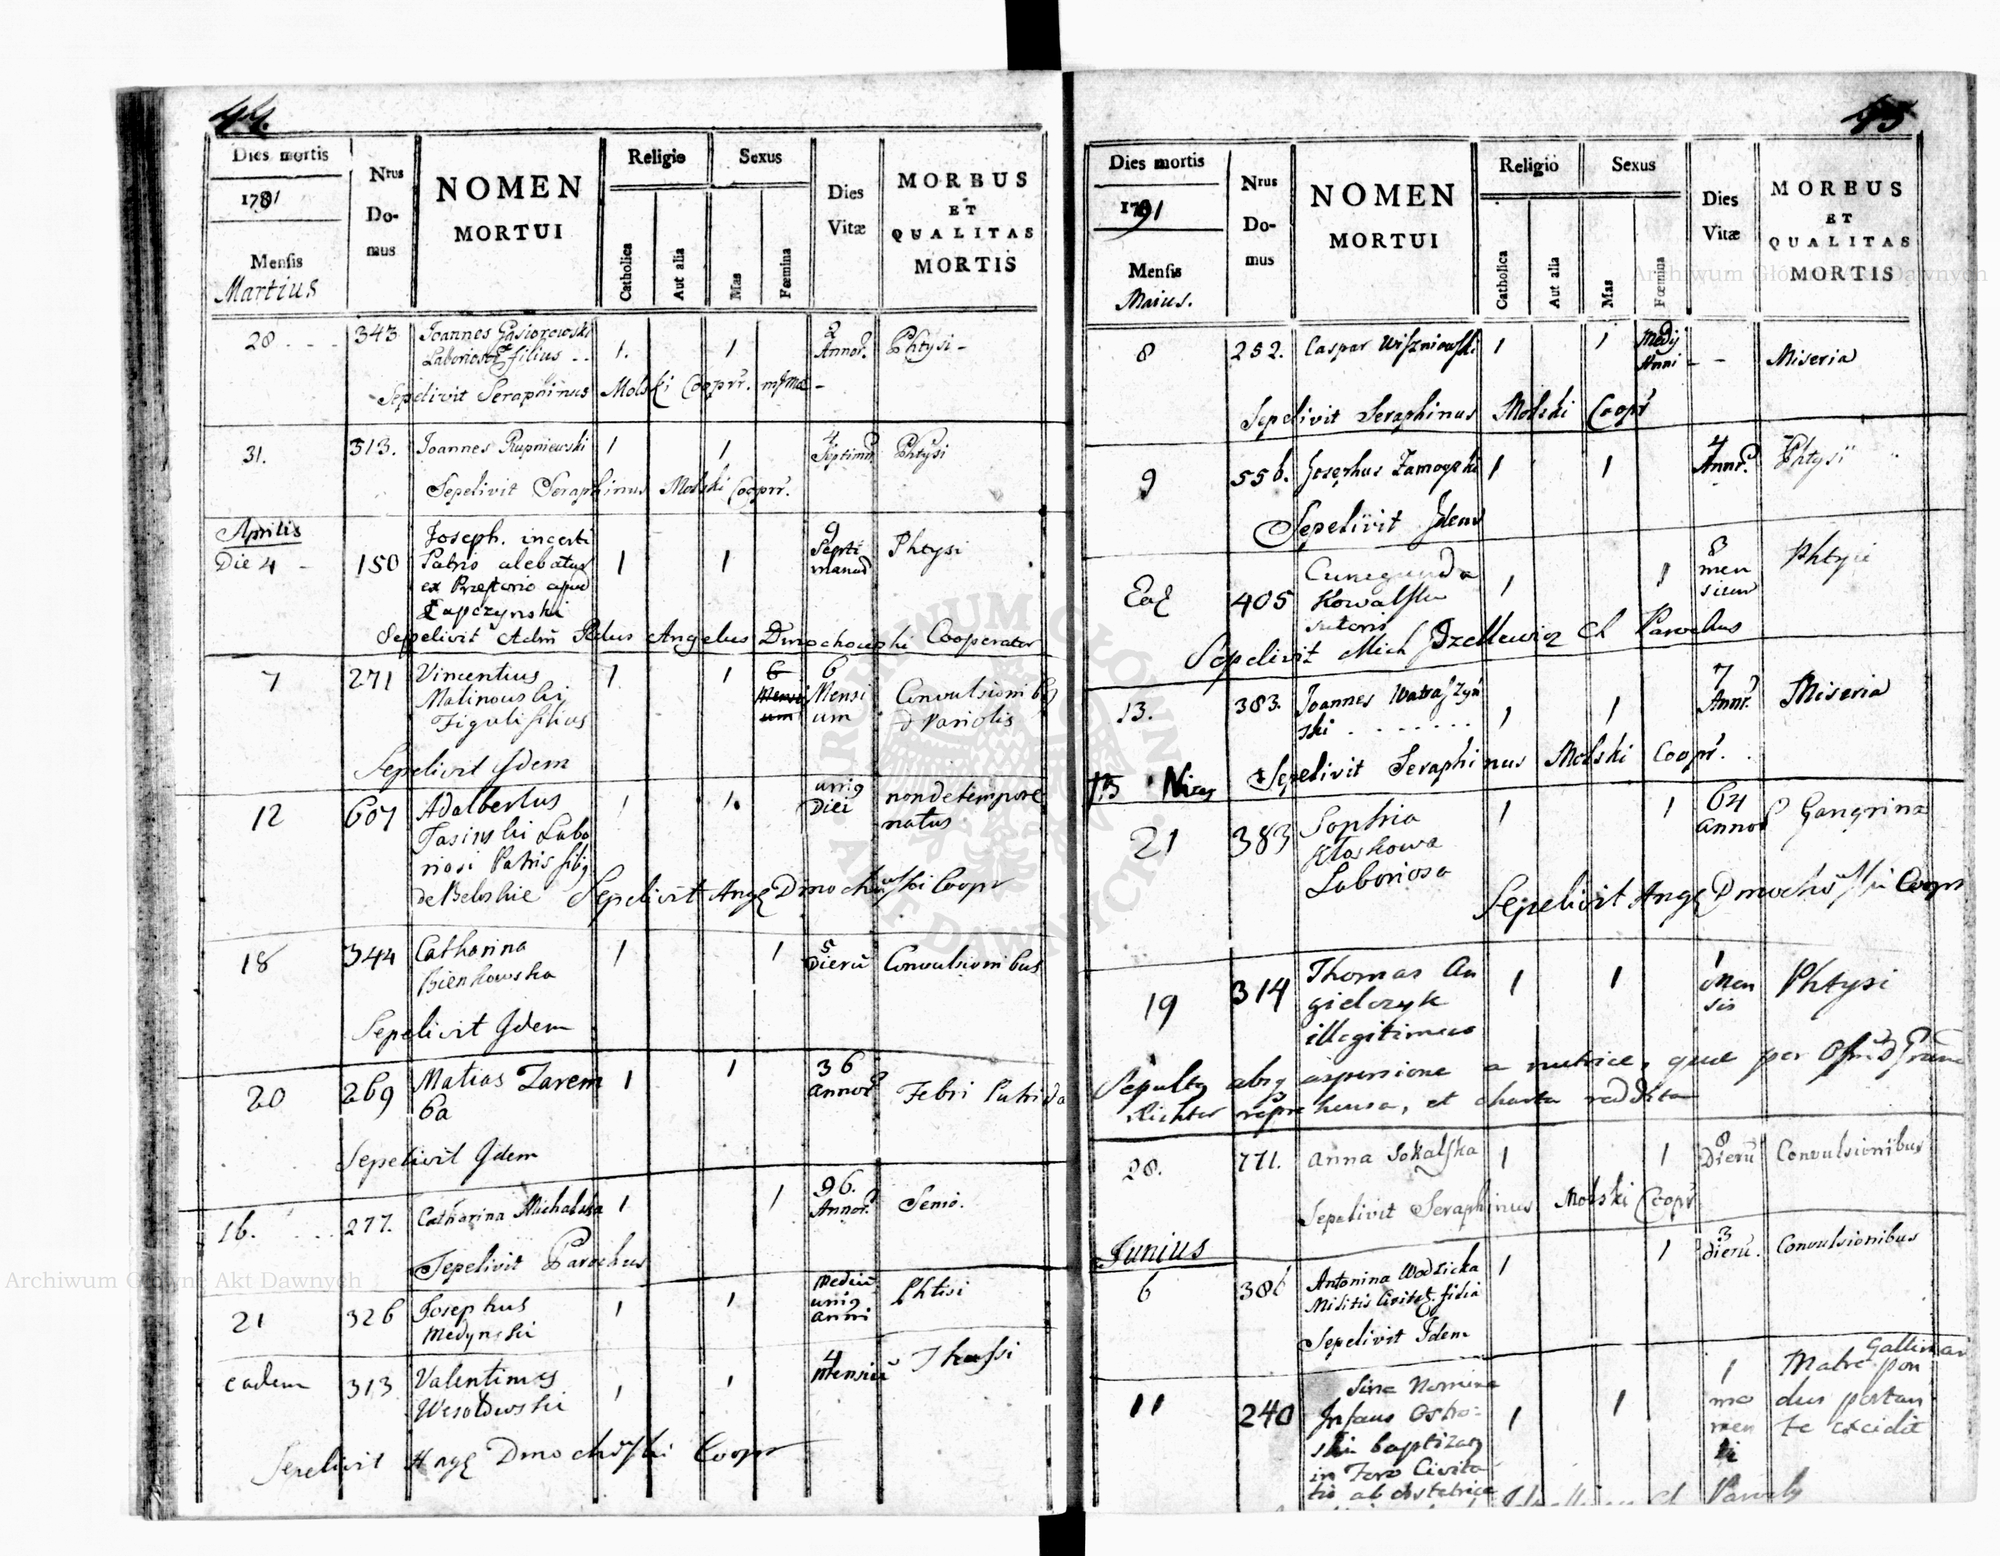 44.
Dies mortis
1791
Mensis
Martius
Nrus
Do-
mus
NOMEN
MORTUI
Religio
Catholica
Aut alia
Sexus
Mas
Fœmina
Dies
Vitæ
MORBUS
ET
QUALITAS
MORTIS
28 343 Joannes Gąsiorowski 1. 1 2 Phtysi
filius
Annor.
Sepelivit Seraphinus Molski Cooprr.
31. 313. Joannes Rupniewski 1 1 4 Septiman. Phtysi
Sepelivit Seraphinus Molski Cooprr.
Aprilis
Die 4 150 Joseph. incerti 1 1 9 Phtysi
Patris alebatus Septi
ex Prætorio apud manar.
Łapczynski
Sepelivit Adm Rdus Angelus Dmochowski Cooperator
7 271 Vincentius 1. 1 6 6
Malinowski Mensi Mensi Convulsionibq
Figuli filius um um & Variolis
Sepelivit Idem
12 607 Adalbertus 1 1. uniq non de tempore
Jasinski Labo Diei natus
riosi Patris filiq
de Belskie Sepelivit Ang Dmochowski Coopr
18 344 Catharina 1 1 5 Convulsionibus
Bienkowska Dierū
Sepelivit Idem
20 269 Matias Zarem 1 1 36 Febri Putrida
ba Annor.
Sepelivit Idem
16. 277. Catharina Michalska 1 1 96. Senio.
Annor.
Sepelivit Parochus
21 326 Josephus 1 1 Mediū Phtisi
Medynski uniq
anni
eadem 313 Valentinus 1 1 4 Thussi
Wesołowski Mensiū
Sepelivit Ang Dmochowski Coopr
45
Dies mortis
1791
Mensis
Maius.
Nrus
Do-
mus
NOMEN
MORTUI
Religio
Catholica
Aut alia
Sexus
Mas
Fœmina
Dies
Vitæ
MORBUS
ET
QUALITAS
MORTIS
8 252. Caspar Wiszniewski 1 1 Medij Miseria
Anni
Sepelivit Seraphinus Molski Coopr
9 556. Josephus Zamoyski 1 1 4 Phtysi
Annr.
Sepelivit Idem
Ead 405 Cunegunda 1 1 8 Phtysi
Kowalska men
sutoris sium
Sepelivit Mich Parochus
13. 383. Joannes Watraszyń 1 1 7 Miseria
ski Annr.
Sepelivit Seraphinus Molski Coopr.
21 383 Sophia 1 1 64 Gangrina
Kloskowa annor
Laboriosa
Sepelivit Ang Dmochowski Coopr
19 314 Thomas An 1 1 1 Phtysi
gielczyk Men
illegitimus sis
Sepultq absq aspersione a nutrice, quæ per
Richter reprehensa, et charta reddita
28. 771. Anna Sokalska 1 1 8 Convulsionibus
Dierū
Sepelivit Seraphinus Molski Coopr
Junius
6 386 Antonina Wodzicka 1 1 3 Convulsionibus
Militis Civitat. filia dierū.
Sepelivit Idem
11 240 Sine Nomine 1 1 1 Gallinar
Infans Ostro- mo Matre pon
ski baptizatq men dus portan
in Foro Civita ti te excidit
tis ab obstetrice
Parochq
ARCHIWUM GŁÓWNE AKT DAWNYCH
Archiwum Główne Akt Dawnych
Archiwum Główne Akt Dawnych